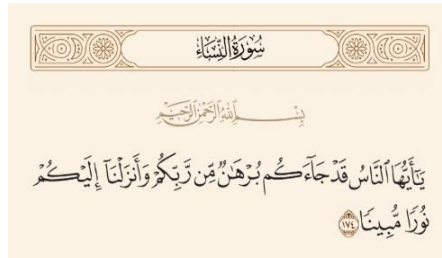 سُورَةُ النِّسَاءِ
بِسْمِ ٱللَّهِ ٱلرَّحْمَٰنِ ٱلرَّحِيمِ
يَٰٓأَيُّهَا ٱلنَّاسُ قَدۡ جَآءَكُم بُرۡهَٰنٞ مِّن رَّبِّكُمۡ وَأَنزَلۡنَآ إِلَيۡكُمۡ
نُورٗا مُّبِينٗا ١٧٤